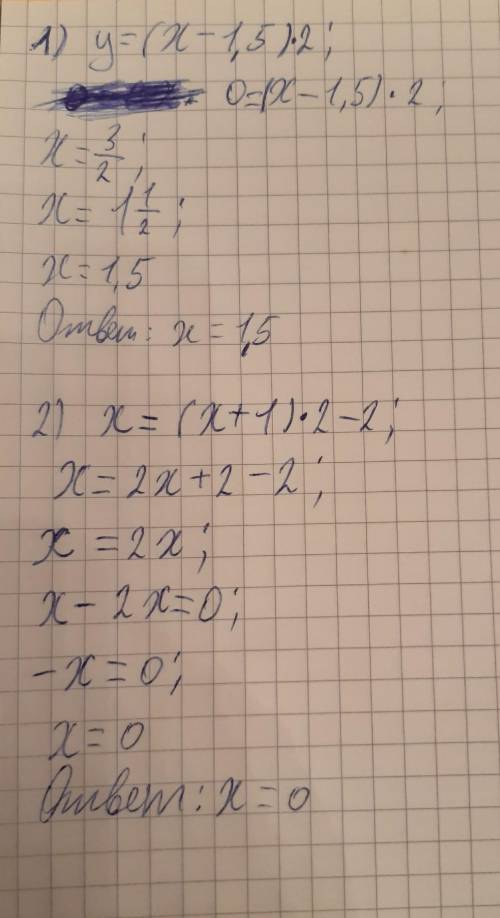 1) y=(x-1,5)·2;
0=(x-1,5)·2;
x=3/2;
x=1 1/2;
x=1,5
Ответ: x=1,5
2) x=(x+1)·2-2;
x=2x+2-2;
x=2x;
x-2x=0;
-x=0;
x=0
Ответ: x=0